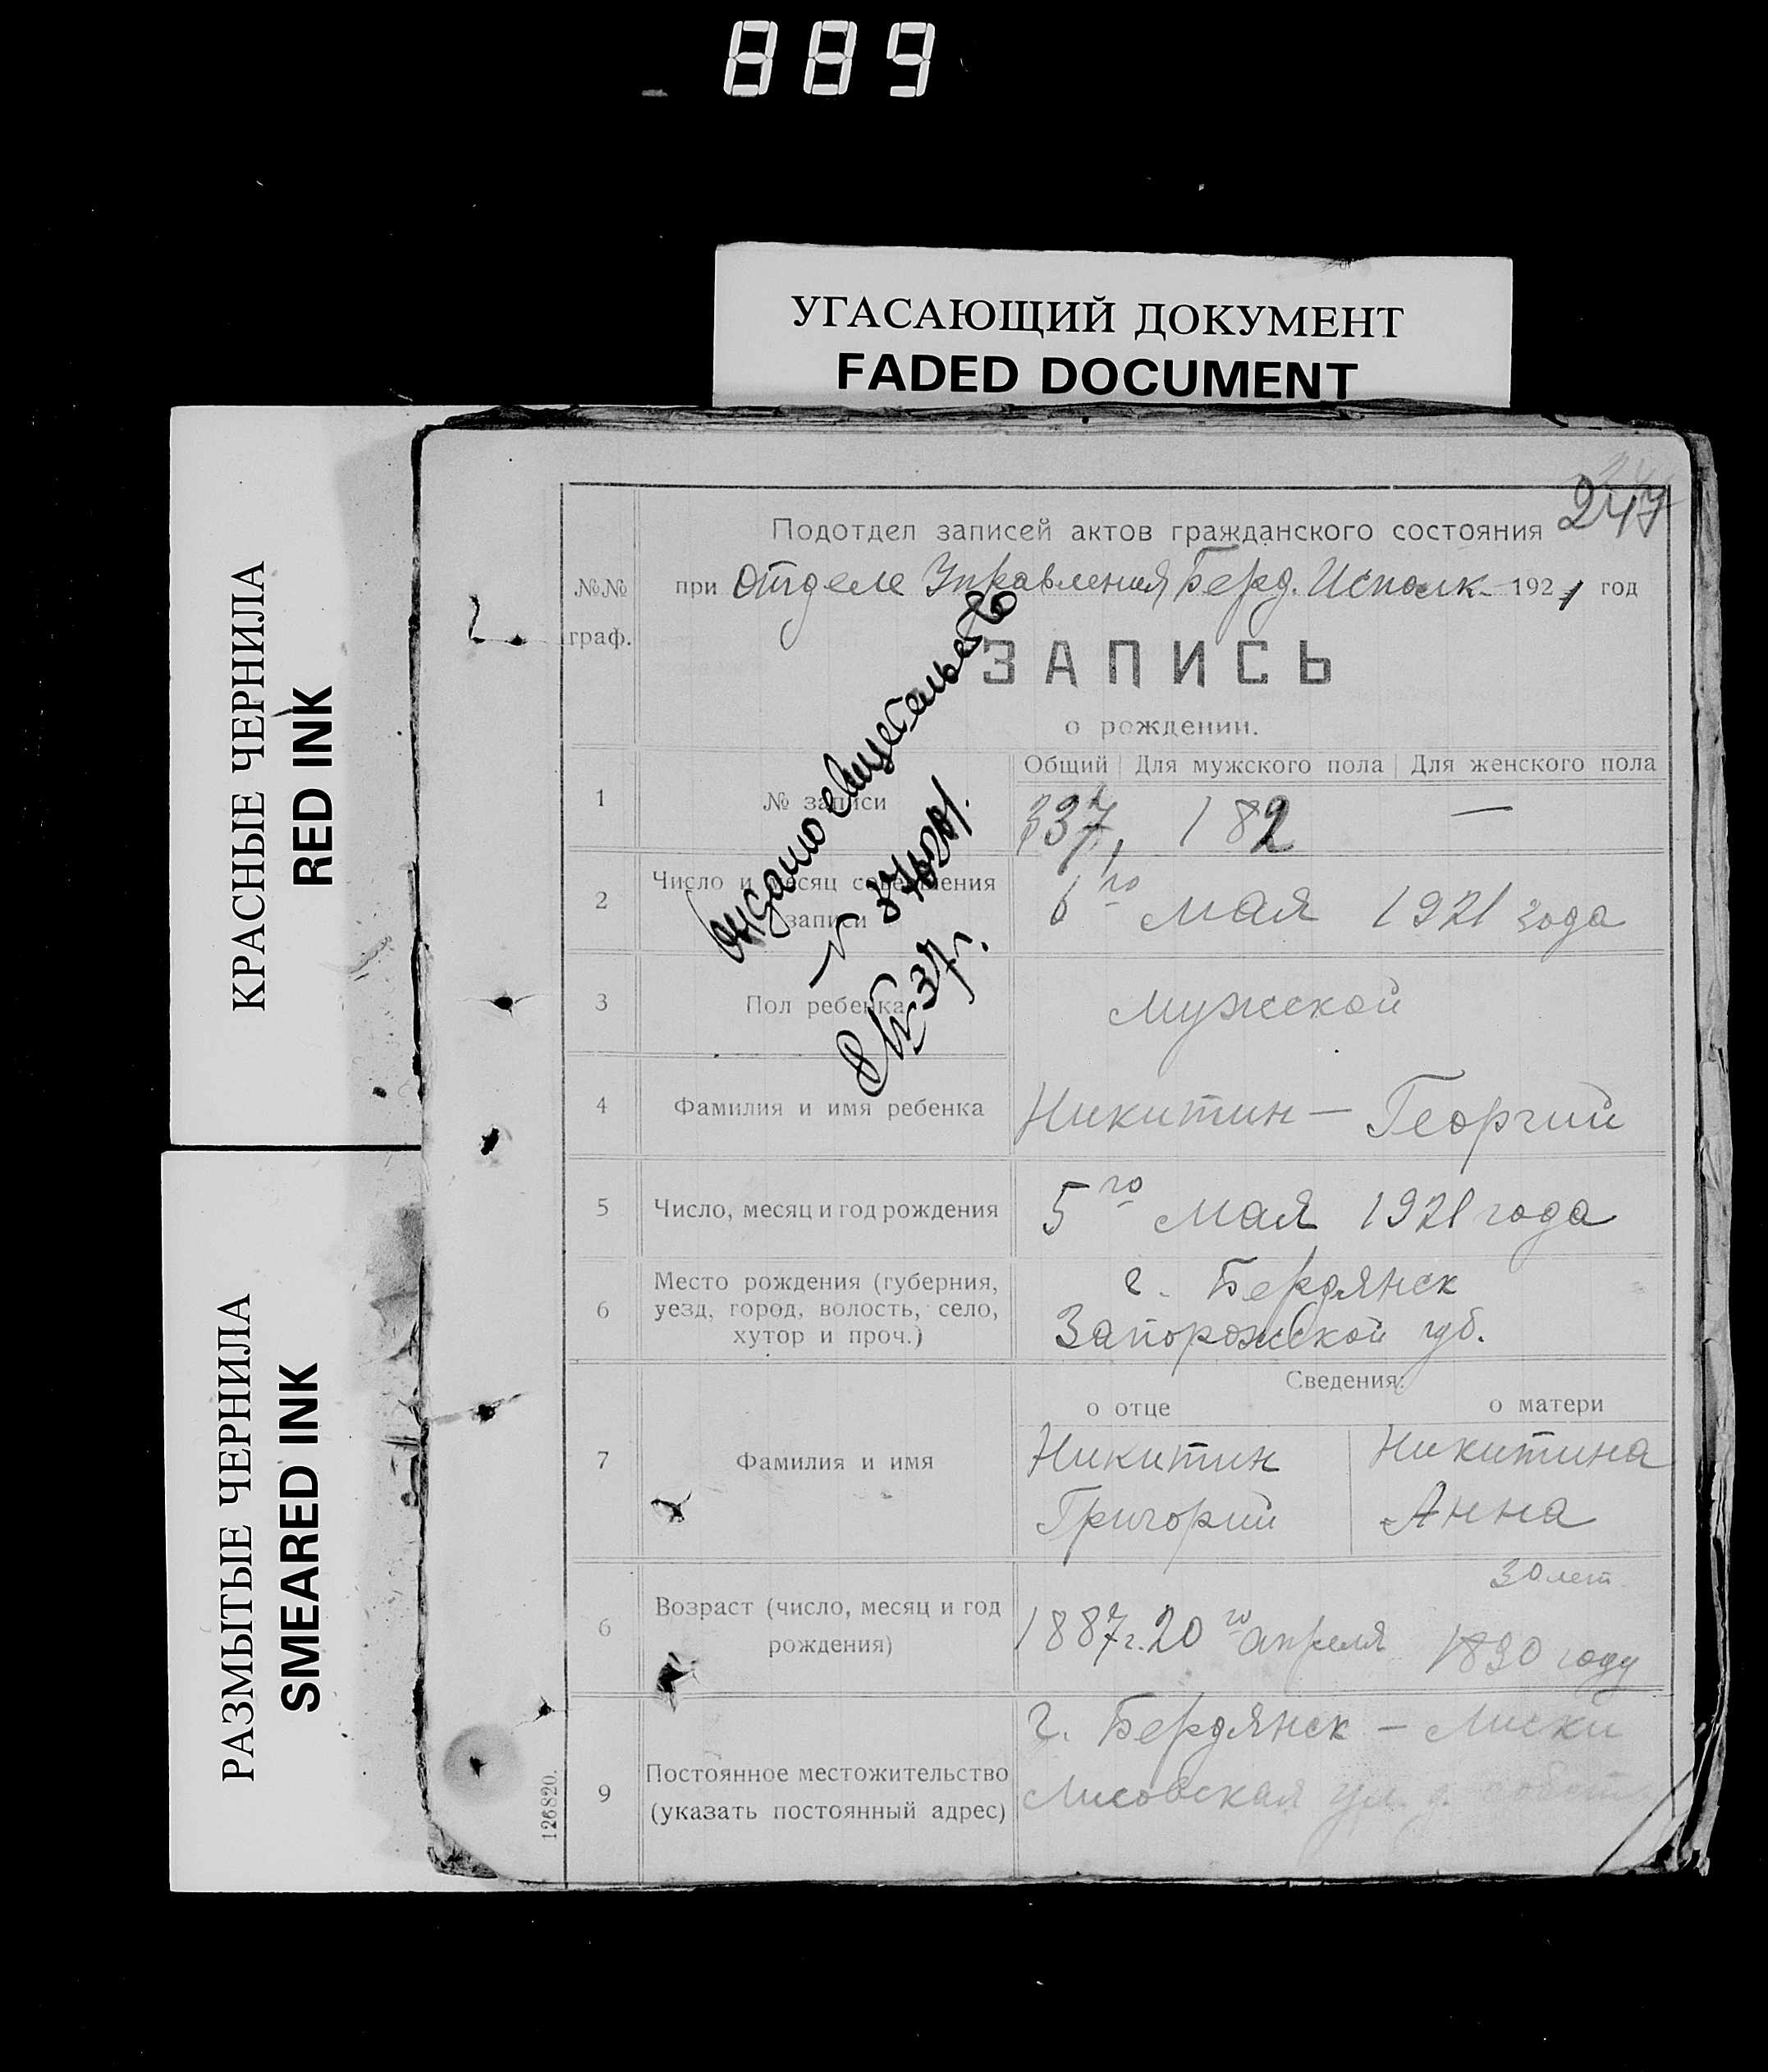 889
УГАСАЮЩИЙ ДОКУМЕНТ
FADED DOCUMENT
КРАСНЫЕ ЧЕРНИЛА
RED INK
РАЗМЫТЫЕ ЧЕРНИЛА
SMEARED INK
247
Подотдел записей актов гражданского состояния
№№ граф.
при Отделе Управления Берд. Исполк. 1921 год
ЗАПИСЬ
о рождении.
Выдано свидетельство
8/IV-37г.
Общий Для мужского пола Для женского пола
1 № записи 337, 182 —
2 Число и месяц совершения
записи 6го мая 1921 года
3 Пол ребенка мужской
4 Фамилия и имя ребенка Никитин — Георгий
5 Число, месяц и год рождения 5го мая 1921 года
6 Место рождения (губерния,
уезд, город, волость, село,
хутор и проч.)
г. Бердянск
Запорожской губ.
Сведения:
о отце о матери
7 Фамилия и имя
Никитин Никитина
Григорий Анна
6 Возраст (число, месяц и год
рождения)
30 лет
1887г. 20го апреля 1890 году
9 Постоянное местожительство
(указать постоянный адрес)
г. Бердянск — Лиски
Лисовская ул. д.
126820.